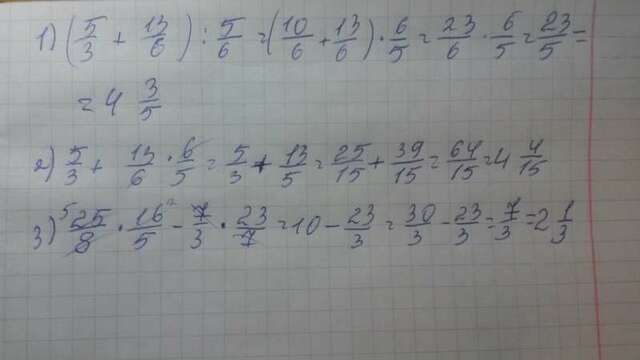 1) (5/3 + 13/6) : 5/6 = (10/6 + 13/6) · 6/5 = 23/6 · 6/5 = 23/5 =
= 4 3/5
2) 5/3 + 13/6 · 6/5 = 5/3 + 13/5 = 25/15 + 39/15 = 64/15 = 4 4/15
3) ⁵25/8 · 16²/5 - 7/3 · 23/7 = 10 - 23/3 = 30/3 - 23/3 = 7/3 = 2 1/3